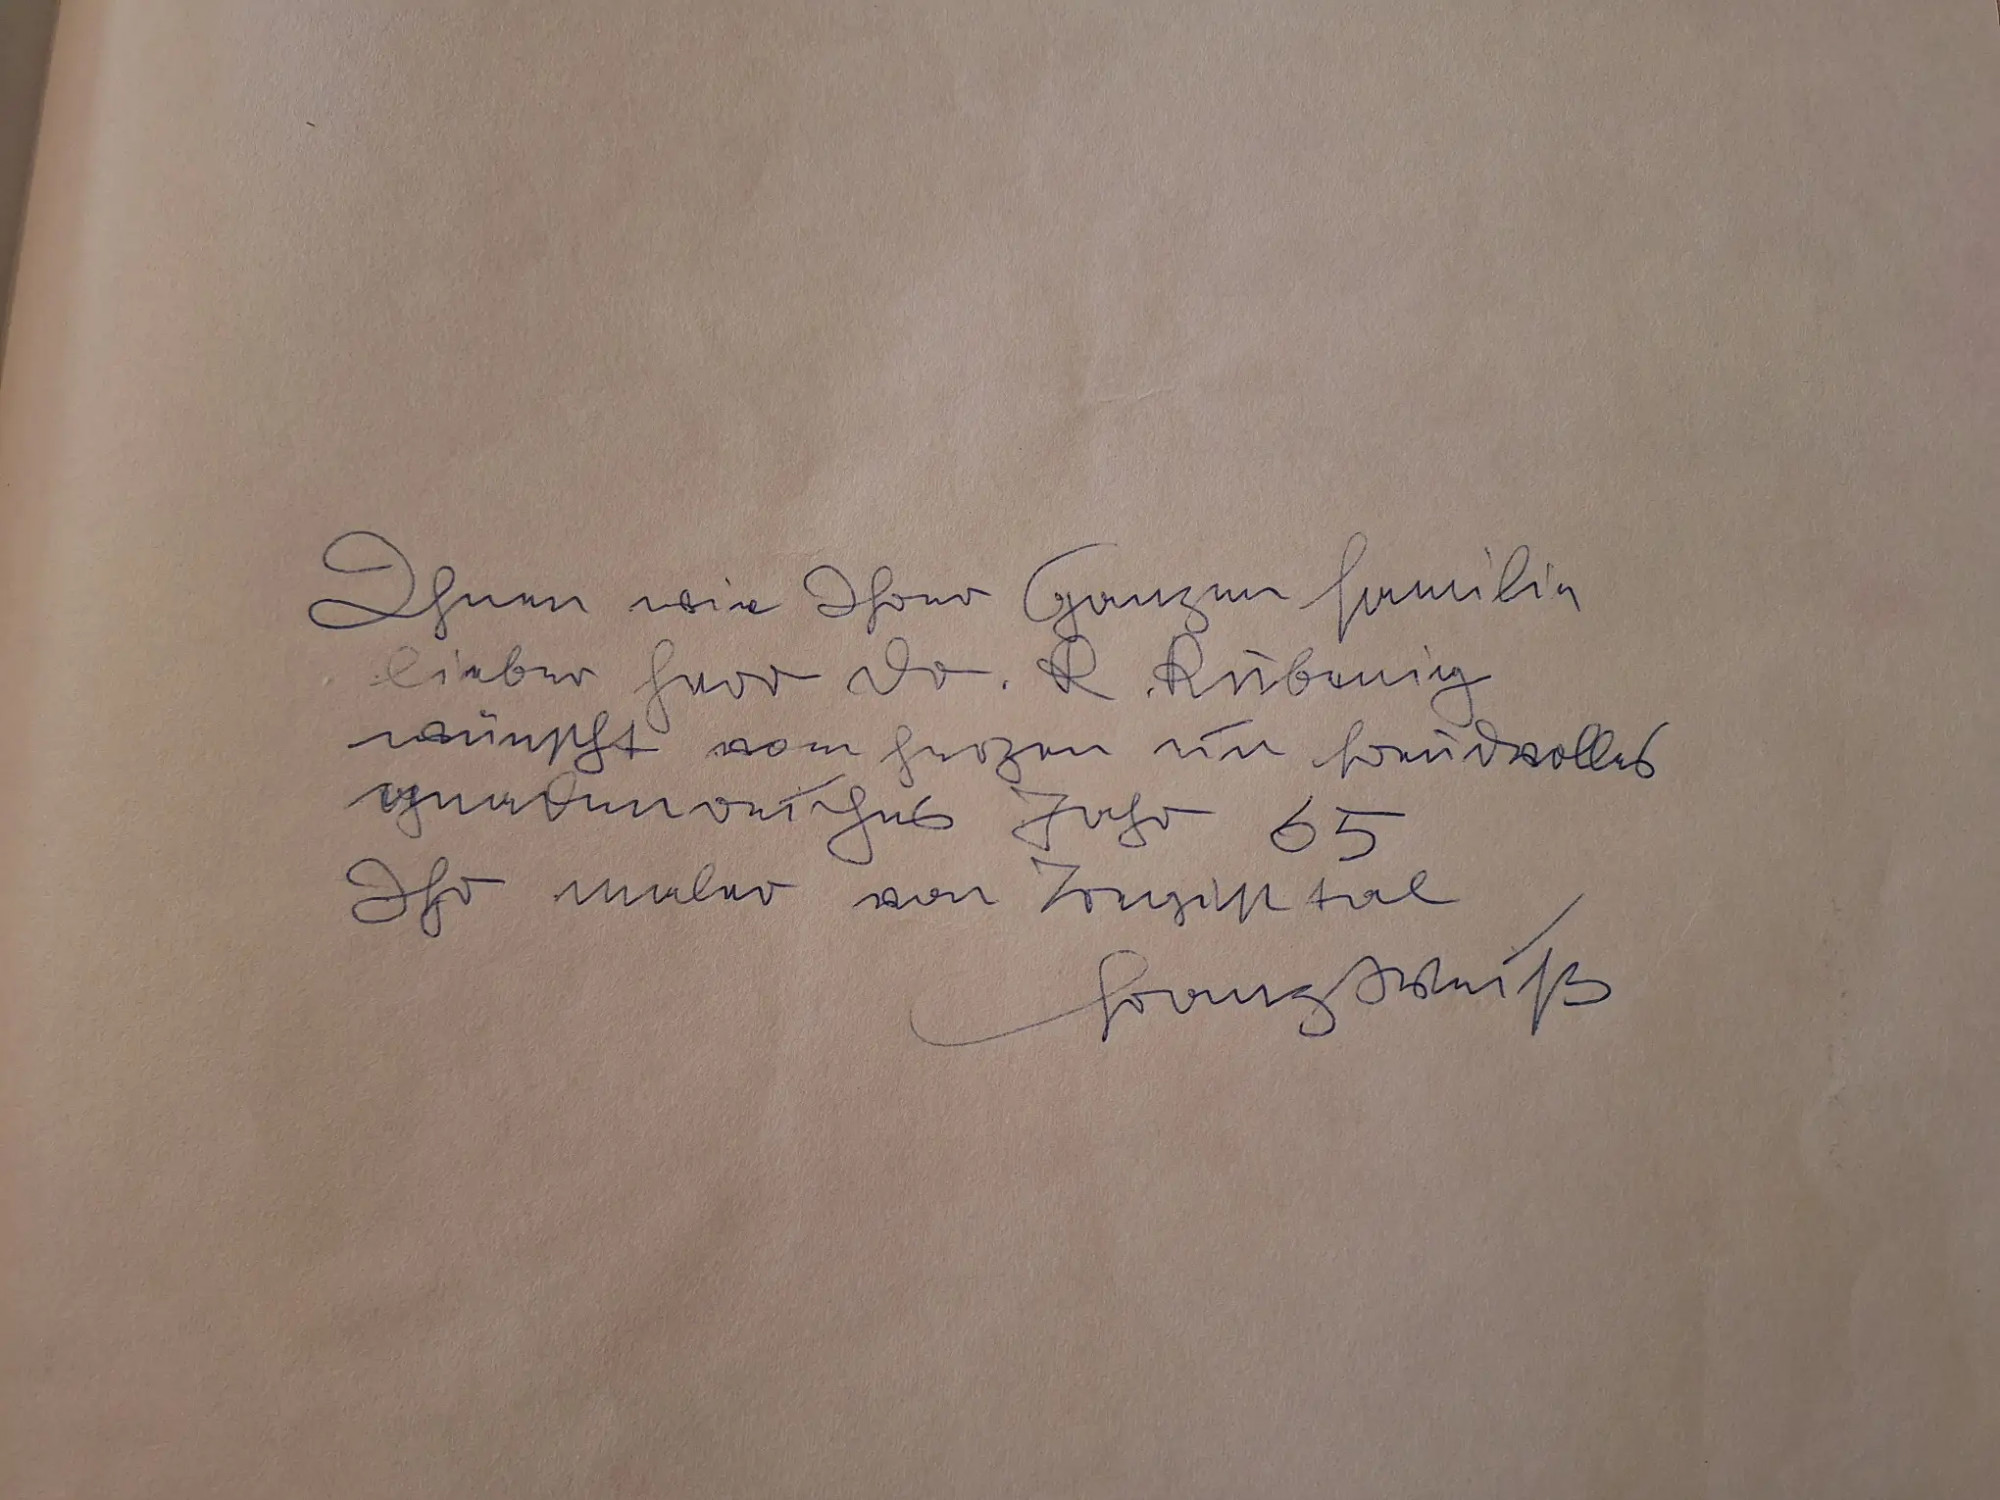 Ihnen wie Ihrer Ganzen Familie
lieber Herr Dr. R. Rübenig
wünscht vom Herzen ein freudvolles
gnadenreiches Jahr 65
Ihr maler von Tragisstal
Franz Weiß